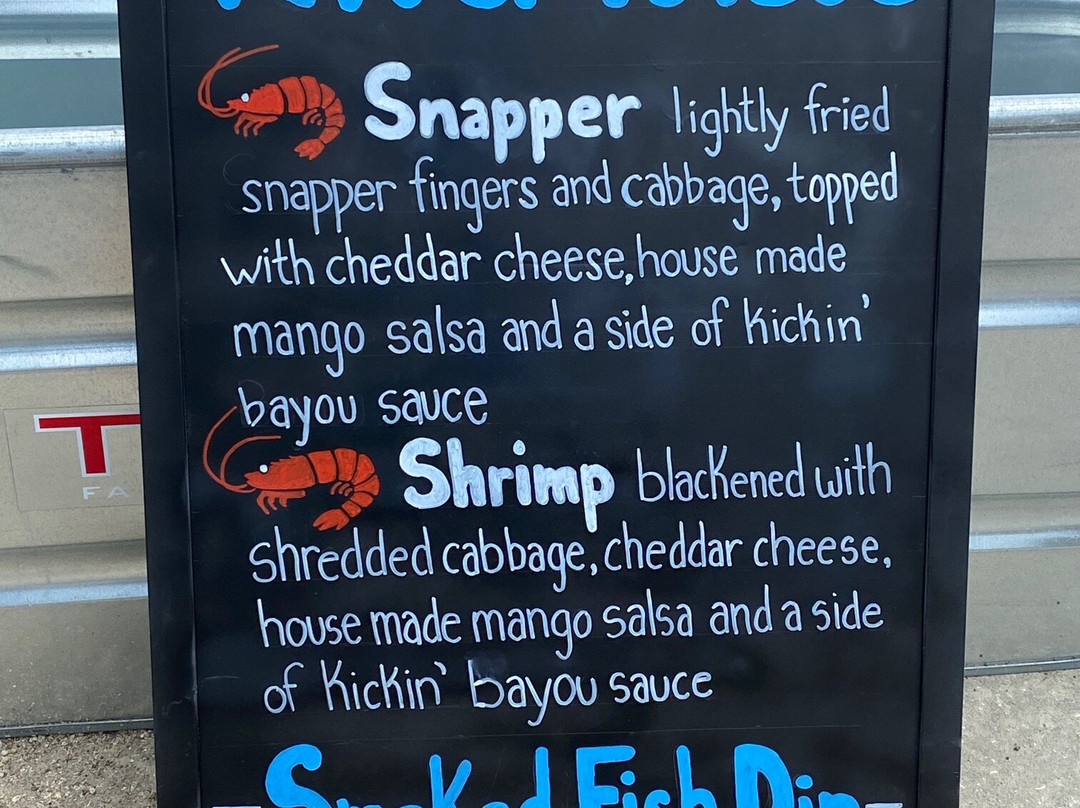 Snapper lightly fried
snapper fingers and cabbage, topped
with cheddar cheese, house made
mango salsa and a side of kickin'
bayou sauce
Shrimp blackened with
shredded cabbage, cheddar cheese,
house made mango salsa and a side
of kickin' bayou sauce
Smoked Fish Dip
T
FA